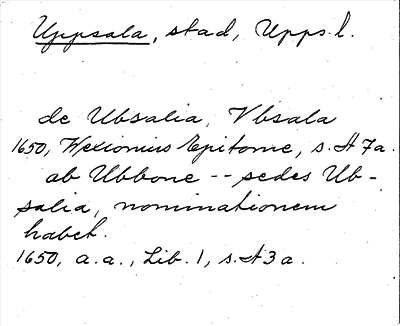 Uppsala, stad, Upps.l.
de Ubsalia, Vbsala
1650, Wexionius Epitome, s. H 7a.
ab Ubbone -- sedes Ub-
salia, nominationem
habet.
1650, a.a., Lib. 1, s. H3a.